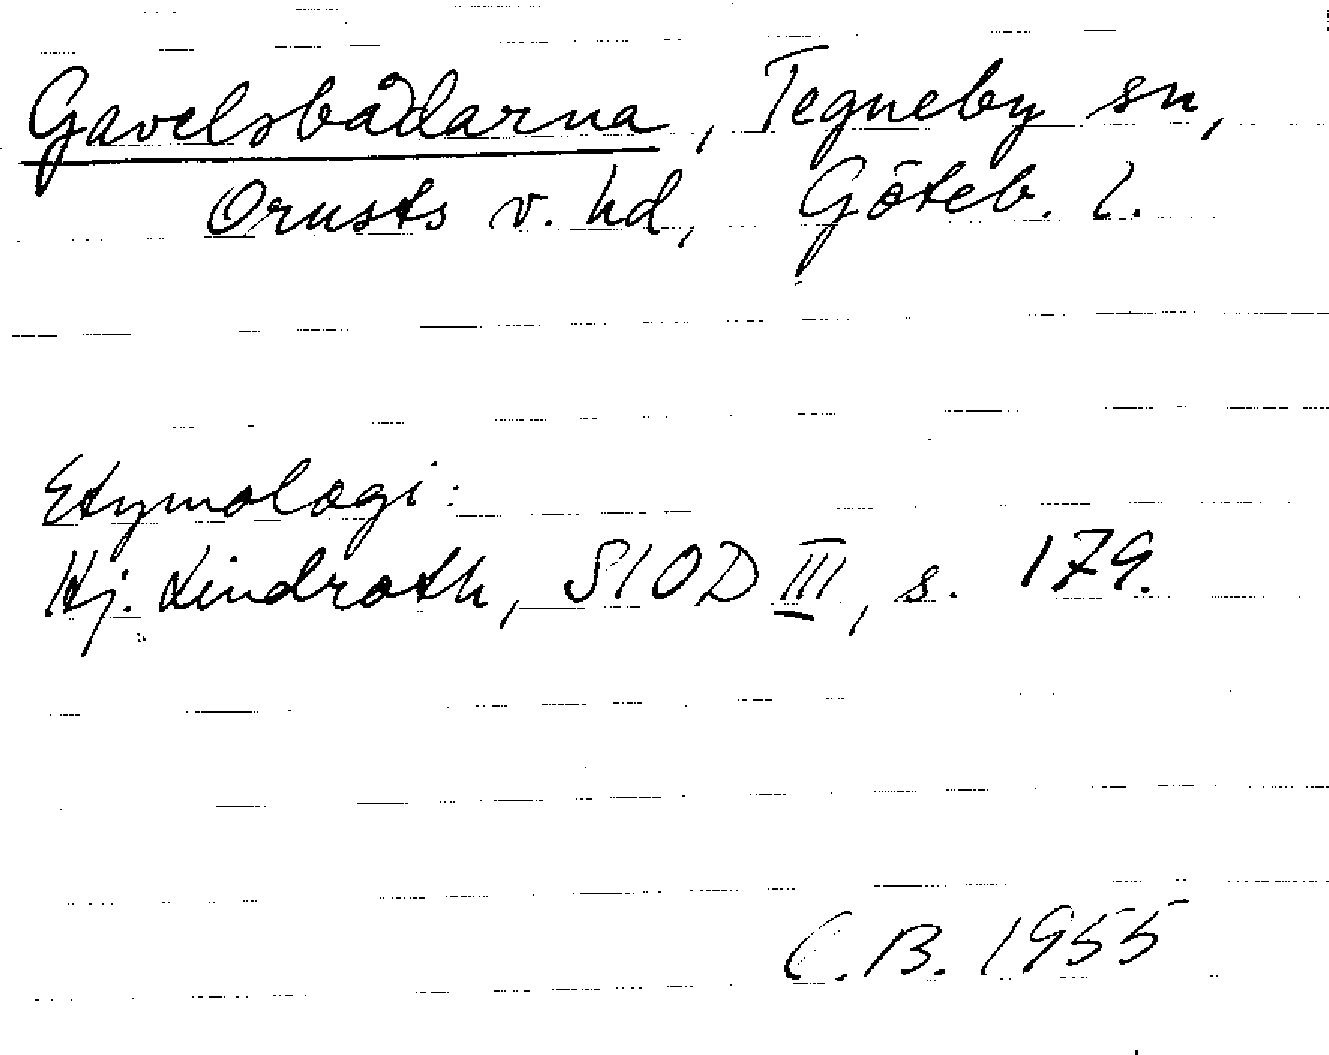 Gavelsbådarna, Tegneby sn,
Orusts v. hd, Göteb. l.
Etymologi:
Hj. Lindroth, SIOD III, s. 179.
C.B. 1955